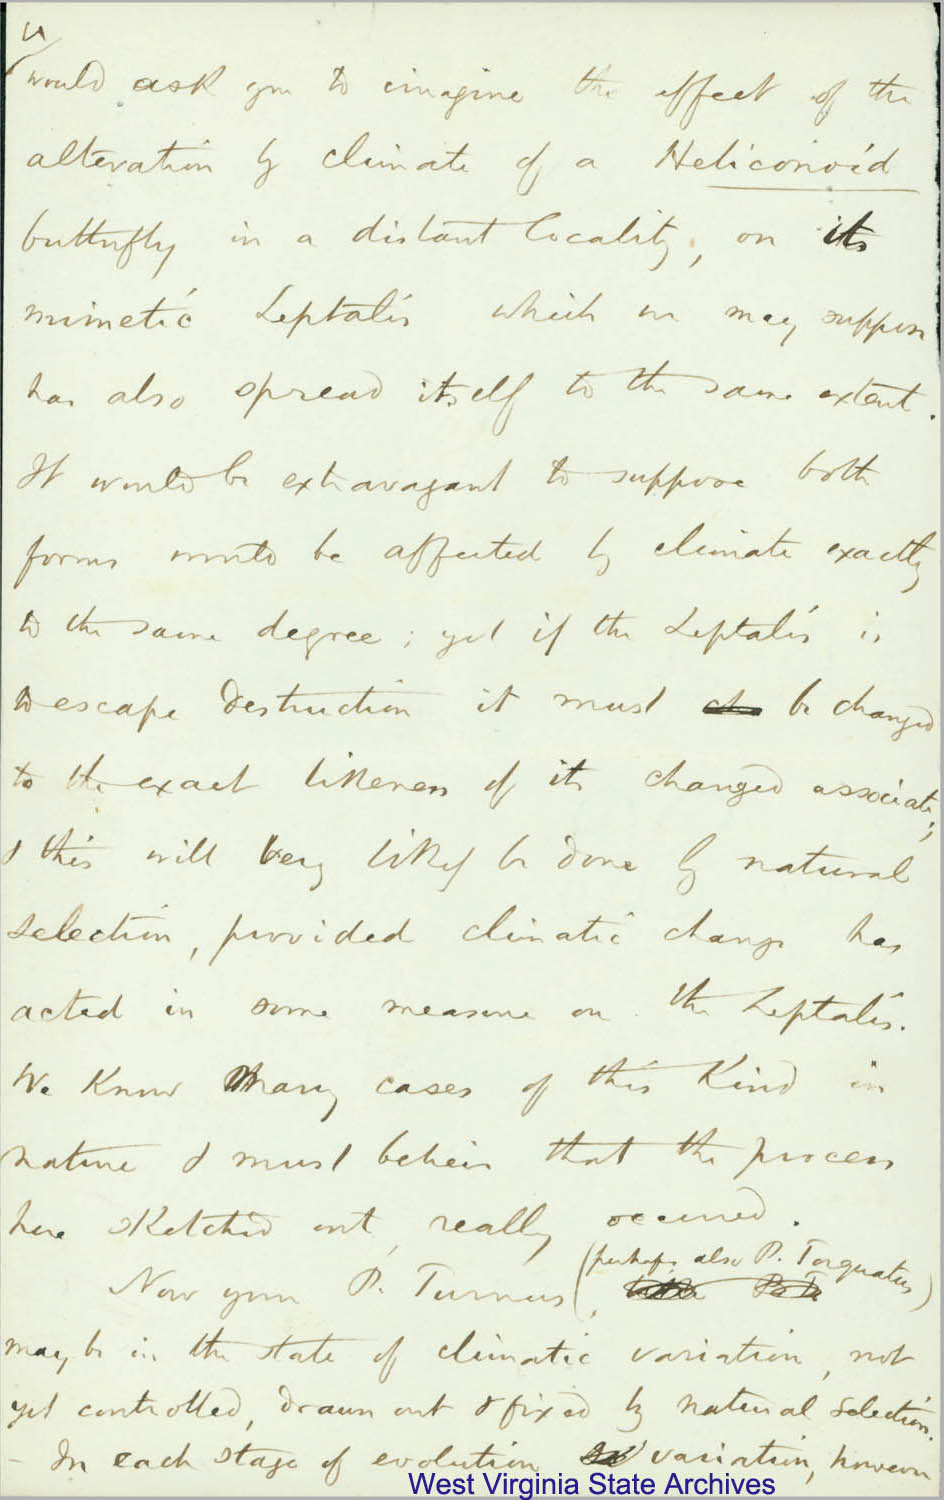 would ask you to imagine the effect of the
alteration by climate of a Heliconoid
butterfly in a distant locality, on its
mimetic Leptalis which we may suppose
has also spread itself to the same extent.
It would be extravagant to suppose both
forms would be affected by climate exactly
to the same degree; yet if the Leptalis is
to escape destruction it must be changed
to the exact likeness of its changed associate;
& this will very likely be done by natural
selection, provided climatic change has
acted in some measure on the Leptalis.
We Know Many cases of this Kind in
nature & must believe that the process
here sketched out, really occurred.
(perhaps also P. Torquatus)
Now your P. Turnus,
may be in the state of climatic variation, not
yet controlled, drawn out & fixed by natural selection.
- In each stage of evolution variation, however
West Virginia State Archives